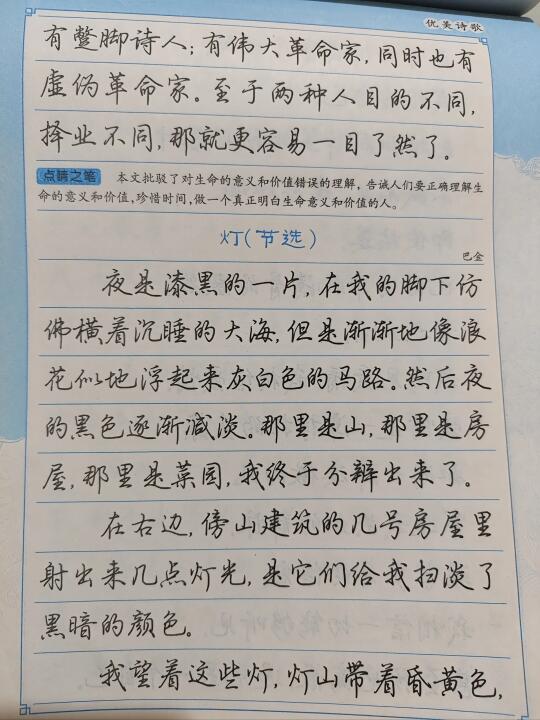 优美诗歌
有蹩脚诗人；有伟大革命家，同时也有
虚伪革命家。至于两种人目的不同，
择业不同，那就更容易一目了然了。
点睛之笔 本文批驳了对生命的意义和价值错误的理解，告诫人们要正确理解生
命的意义和价值，珍惜时间，做一个真正明白生命意义和价值的人。
灯（节选）
巴金
夜是漆黑的一片，在我的脚下仿
佛横着沉睡的大海，但是渐渐地像浪
花似地浮起来灰白色的马路。然后夜
的黑色逐渐减淡。那里是山，那里是房
屋，那里是菜园，我终于分辨出来了。
在右边，傍山建筑的几号房屋里
射出来几点灯光，是它们给我扫淡了
黑暗的颜色。
我望着这些灯，灯山带着昏黄色，